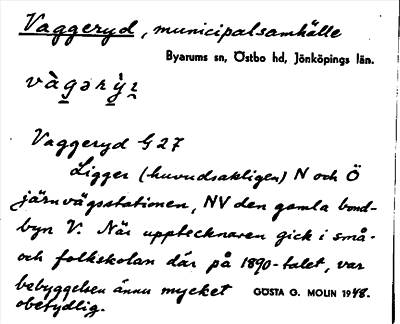 Vaggeryd, municipalsamhälle
Byarums sn, Östbo hd, Jönköpings län.
vàgərỳɪ
Vaggeryd G 27
Ligger (huvudsakligen) N och Ö
järnvägsstationen, NV den gamla bond-
byn V. När upptecknaren gick i små-
och folkskolan där på 1890-talet, var
bebyggelsen ännu mycket GÖSTA G. MOLIN 1948.
obetydlig.